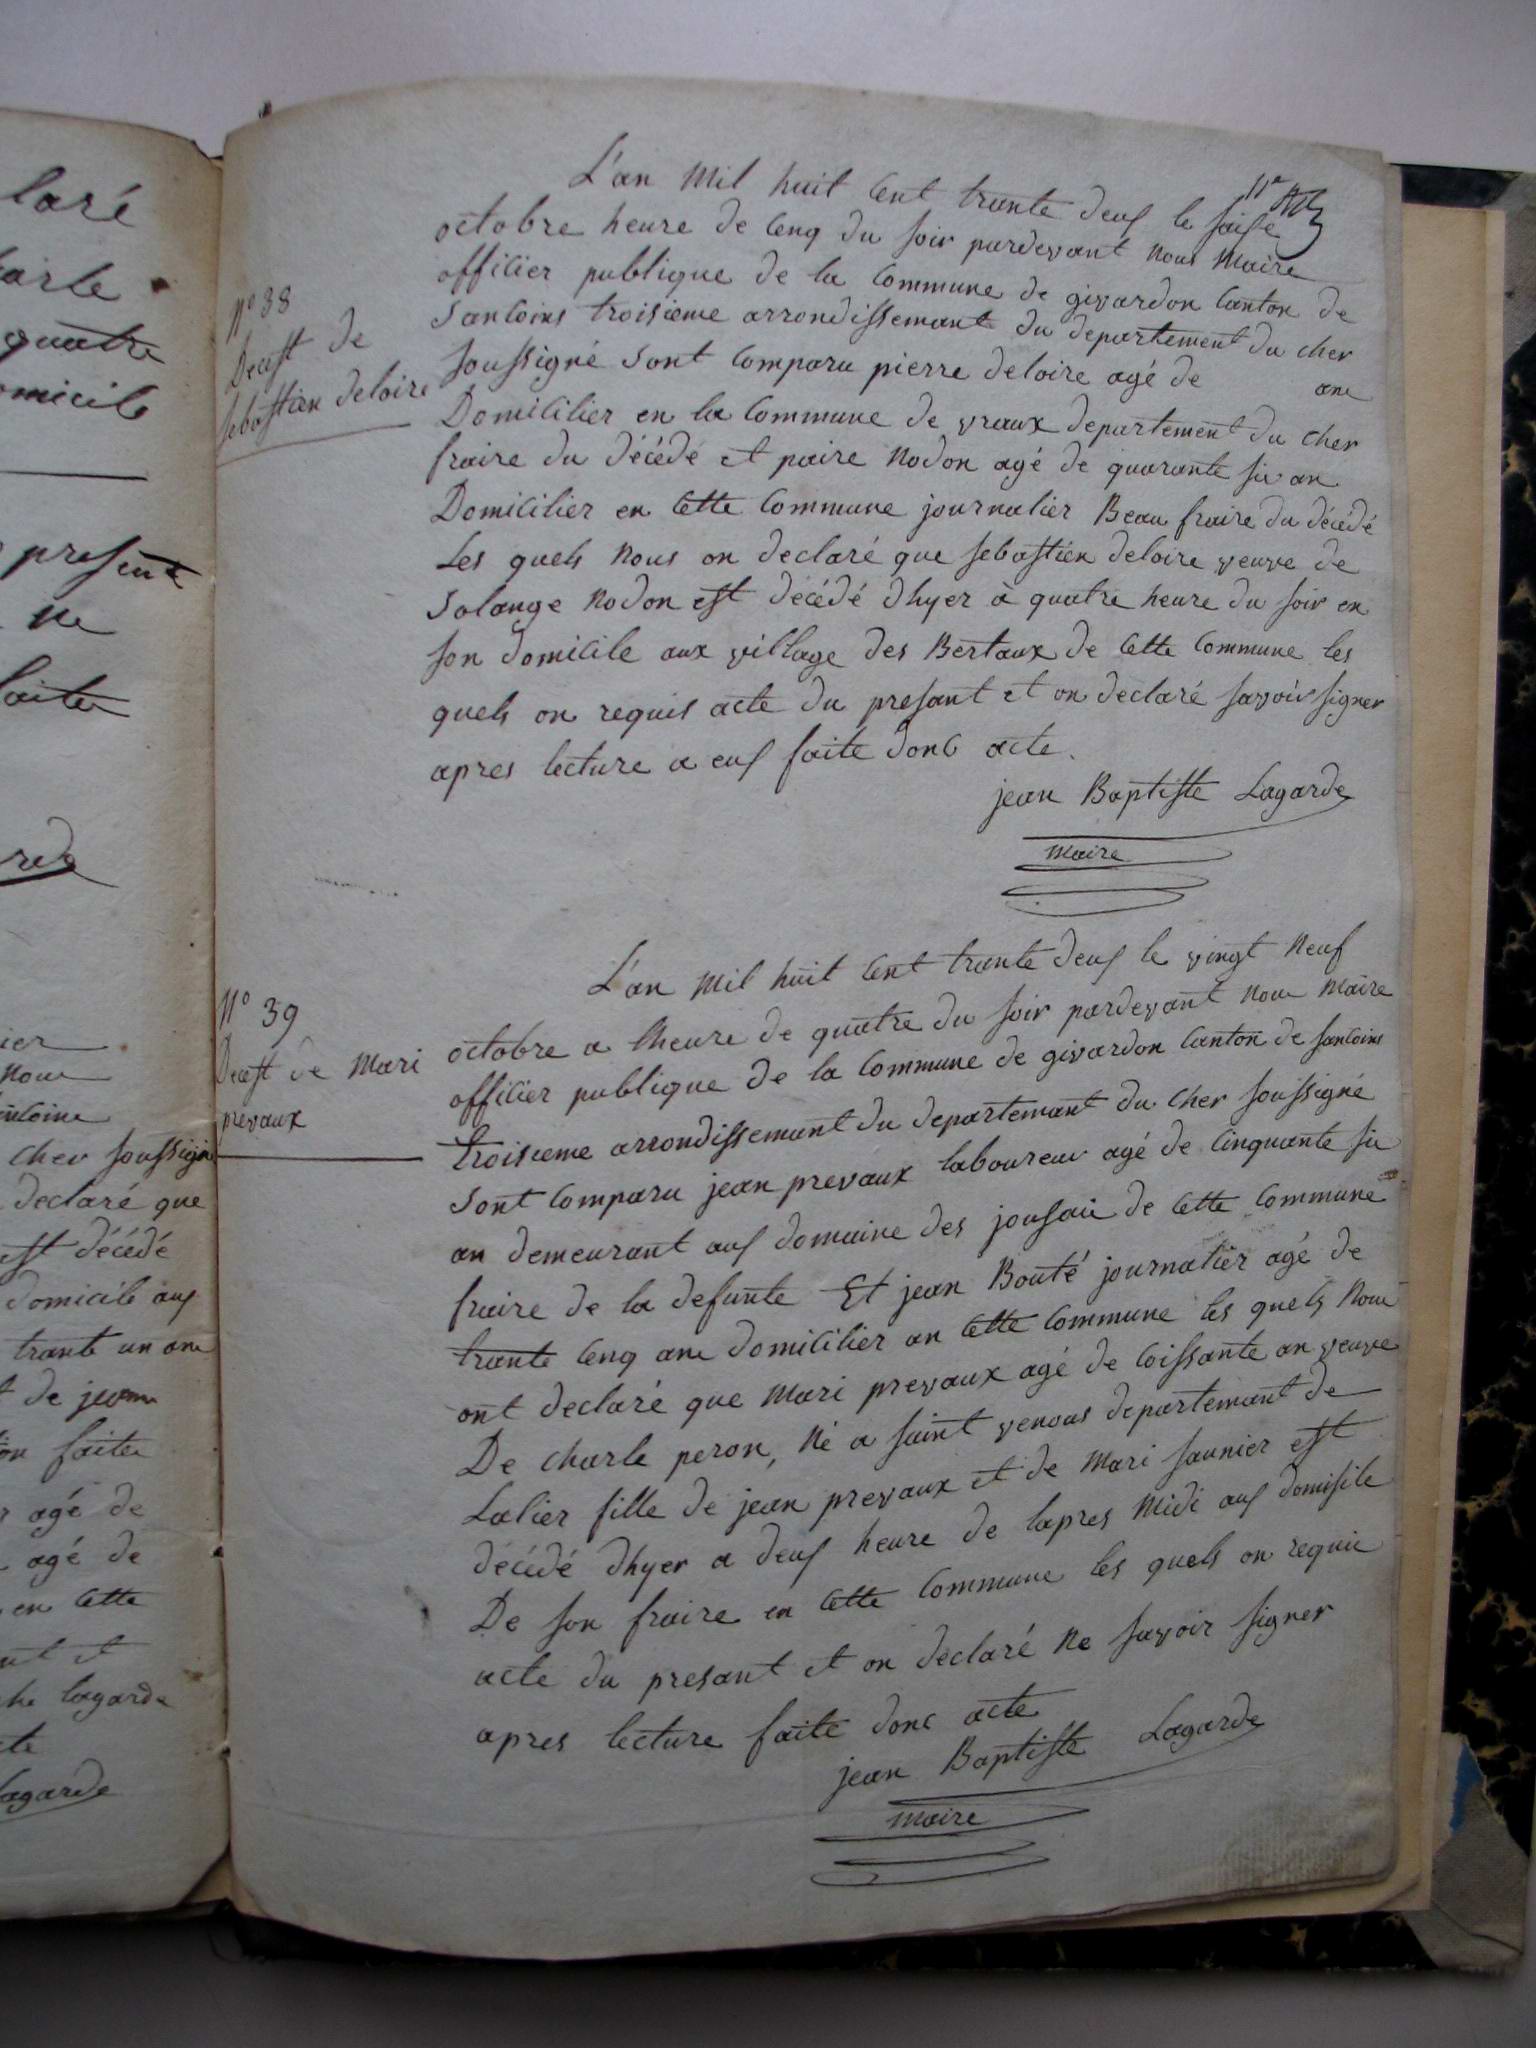 laré
quatre
omicile
present
ne
faite
rde
ier
nou
cher soussigné
declaré que
est décédé
domicile aux
trante un an
t de jean
on faite
r agé de
agé de
en cette
nt et
lagarde
te
Lagarde
11e
N° 38
Decest de
sebastien deloire
L'an Mil huit Cent trante deux le saise
octobre heure de Cenq du soir pardevant Nous Maire
officier publique de la Commune de givardon Canton de
Sancoins troisieme arrondissemant du departement du Cher
soussigné Sont Comparu pierre deloire agé de ans
Domicilier en la Commune de vraux departement du Cher
fraire du décédé et paire Nodon agé de quarante six an
Domicilier en Cette Commune journalier Beau fraire du décédé
Les quels Nous on declaré que sebastien deloire veuve de
Solange Nodon est décédé dhyer à quatre heure du soir en
son domicile aux village des Bertaux de Cette Commune les
quels on requis acte du presant et on declaré savoir signer
apres lecture a eux faite donc acte.
jean Baptiste Lagarde
Maire
N° 39
Decest de Mari
prevaux
L'an Mil huit Cent trante deux le vingt Neuf
octobre a lheure de quatre du soir pardevant Nous Maire
officier publique de la Commune de givardon Canton de sancoins
troisieme arrondissemant du departemant du Cher soussigné
Sont Comparu jean prevaux laboureur agé de Cinquante six
an demeurant aux domaine des jousai de Cette Commune
fraire de la defunte Et jean Bouté journalier agé de
trante Cenq ans domicilier an Cette Commune les quels Nous
ont declaré que Mari prevaux agé de Coissante an veuve
De Charle peron, Né a saint venous departemant de
Lalier fille de jean prevaux et de Mari saunier est
décédé dhyer a deux heure de lapres Midi aux domisile
De son fraire en Cette Commune les quels on requis
acte du presant et on declaré Ne savoir signer
apres lecture faite donc acte
jean Baptiste Lagarde
Maire